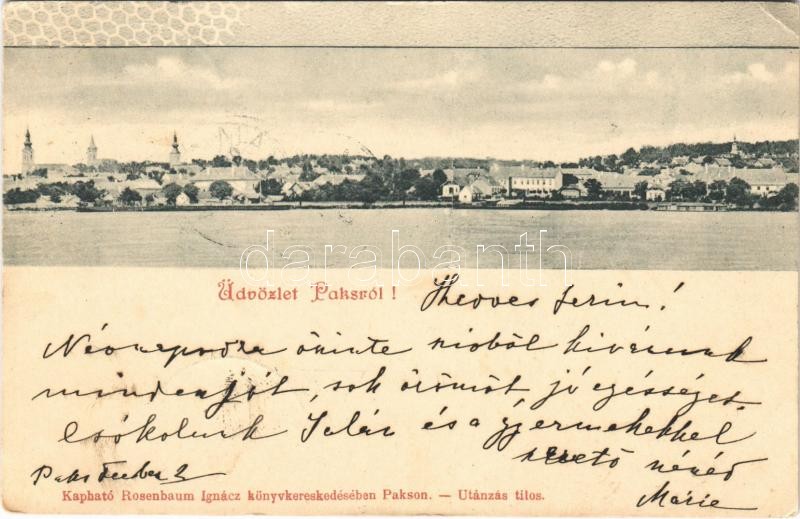 Üdvözlet Paksról!
Kedves Ferim!
Névnapodra őszinte szívből kívánunk
minden jót, sok örömöt, jó egésséget,
csókolunk Irmát és a gyermekekkel
szerető nénéd
Márie
Paks
Kapható Rosenbaum Ignácz könyvkereskedésében Pakson. — Utánzás tilos.
darabanth
.com